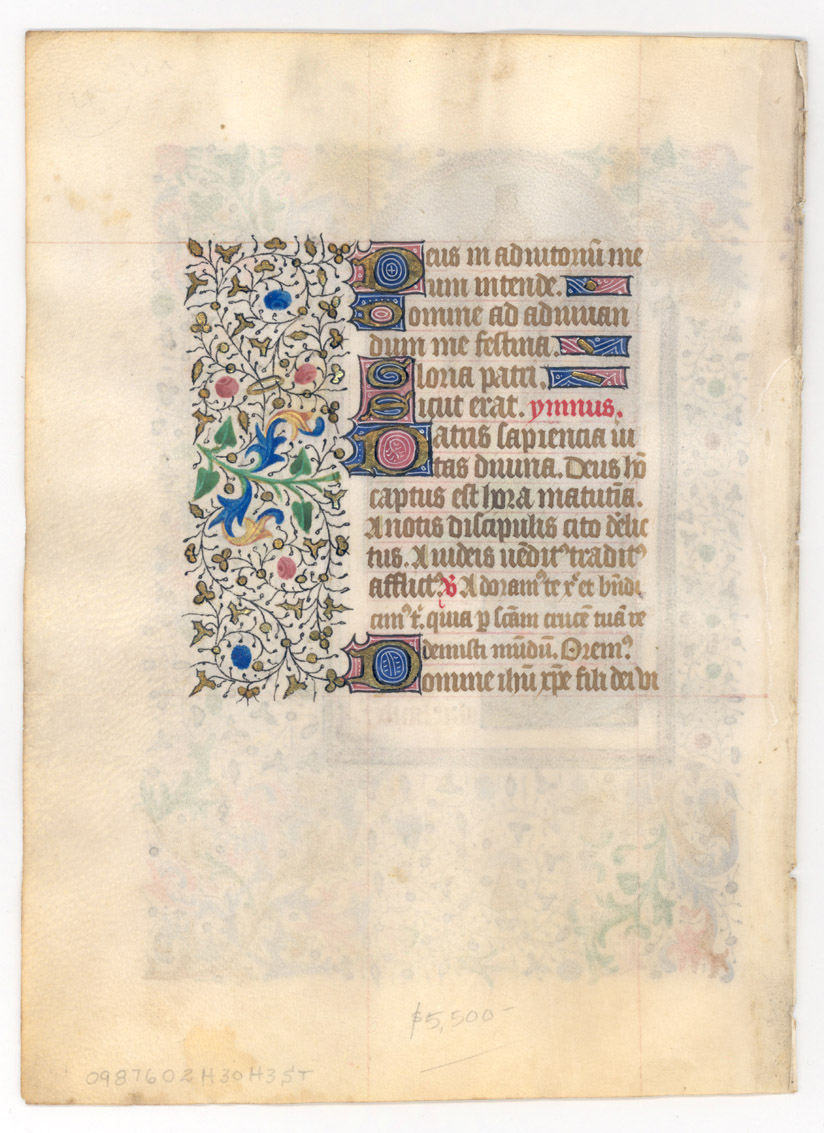 Deus in adiutoriū me
um intende.
Domine ad adiuuan
dum me festina.
Gloria patri.
Sicut erat. ymnus.
Patris sapiencia ui
tas diuina. Deus hō
captus est hora matutīa.
A notis discipulis cito dēlic
tus. A iudeis uēditꝰ traditꝰ
afflictꝰ. ℣ Adoramꝰ te xp̄e et bn̄di
cimꝰ t̄. quia p̄ scām crucē tuā re
demisti mūdū. Oremꝰ
Domine ihū xp̄e fili dei vi
$5,500-
0987602H30H35T